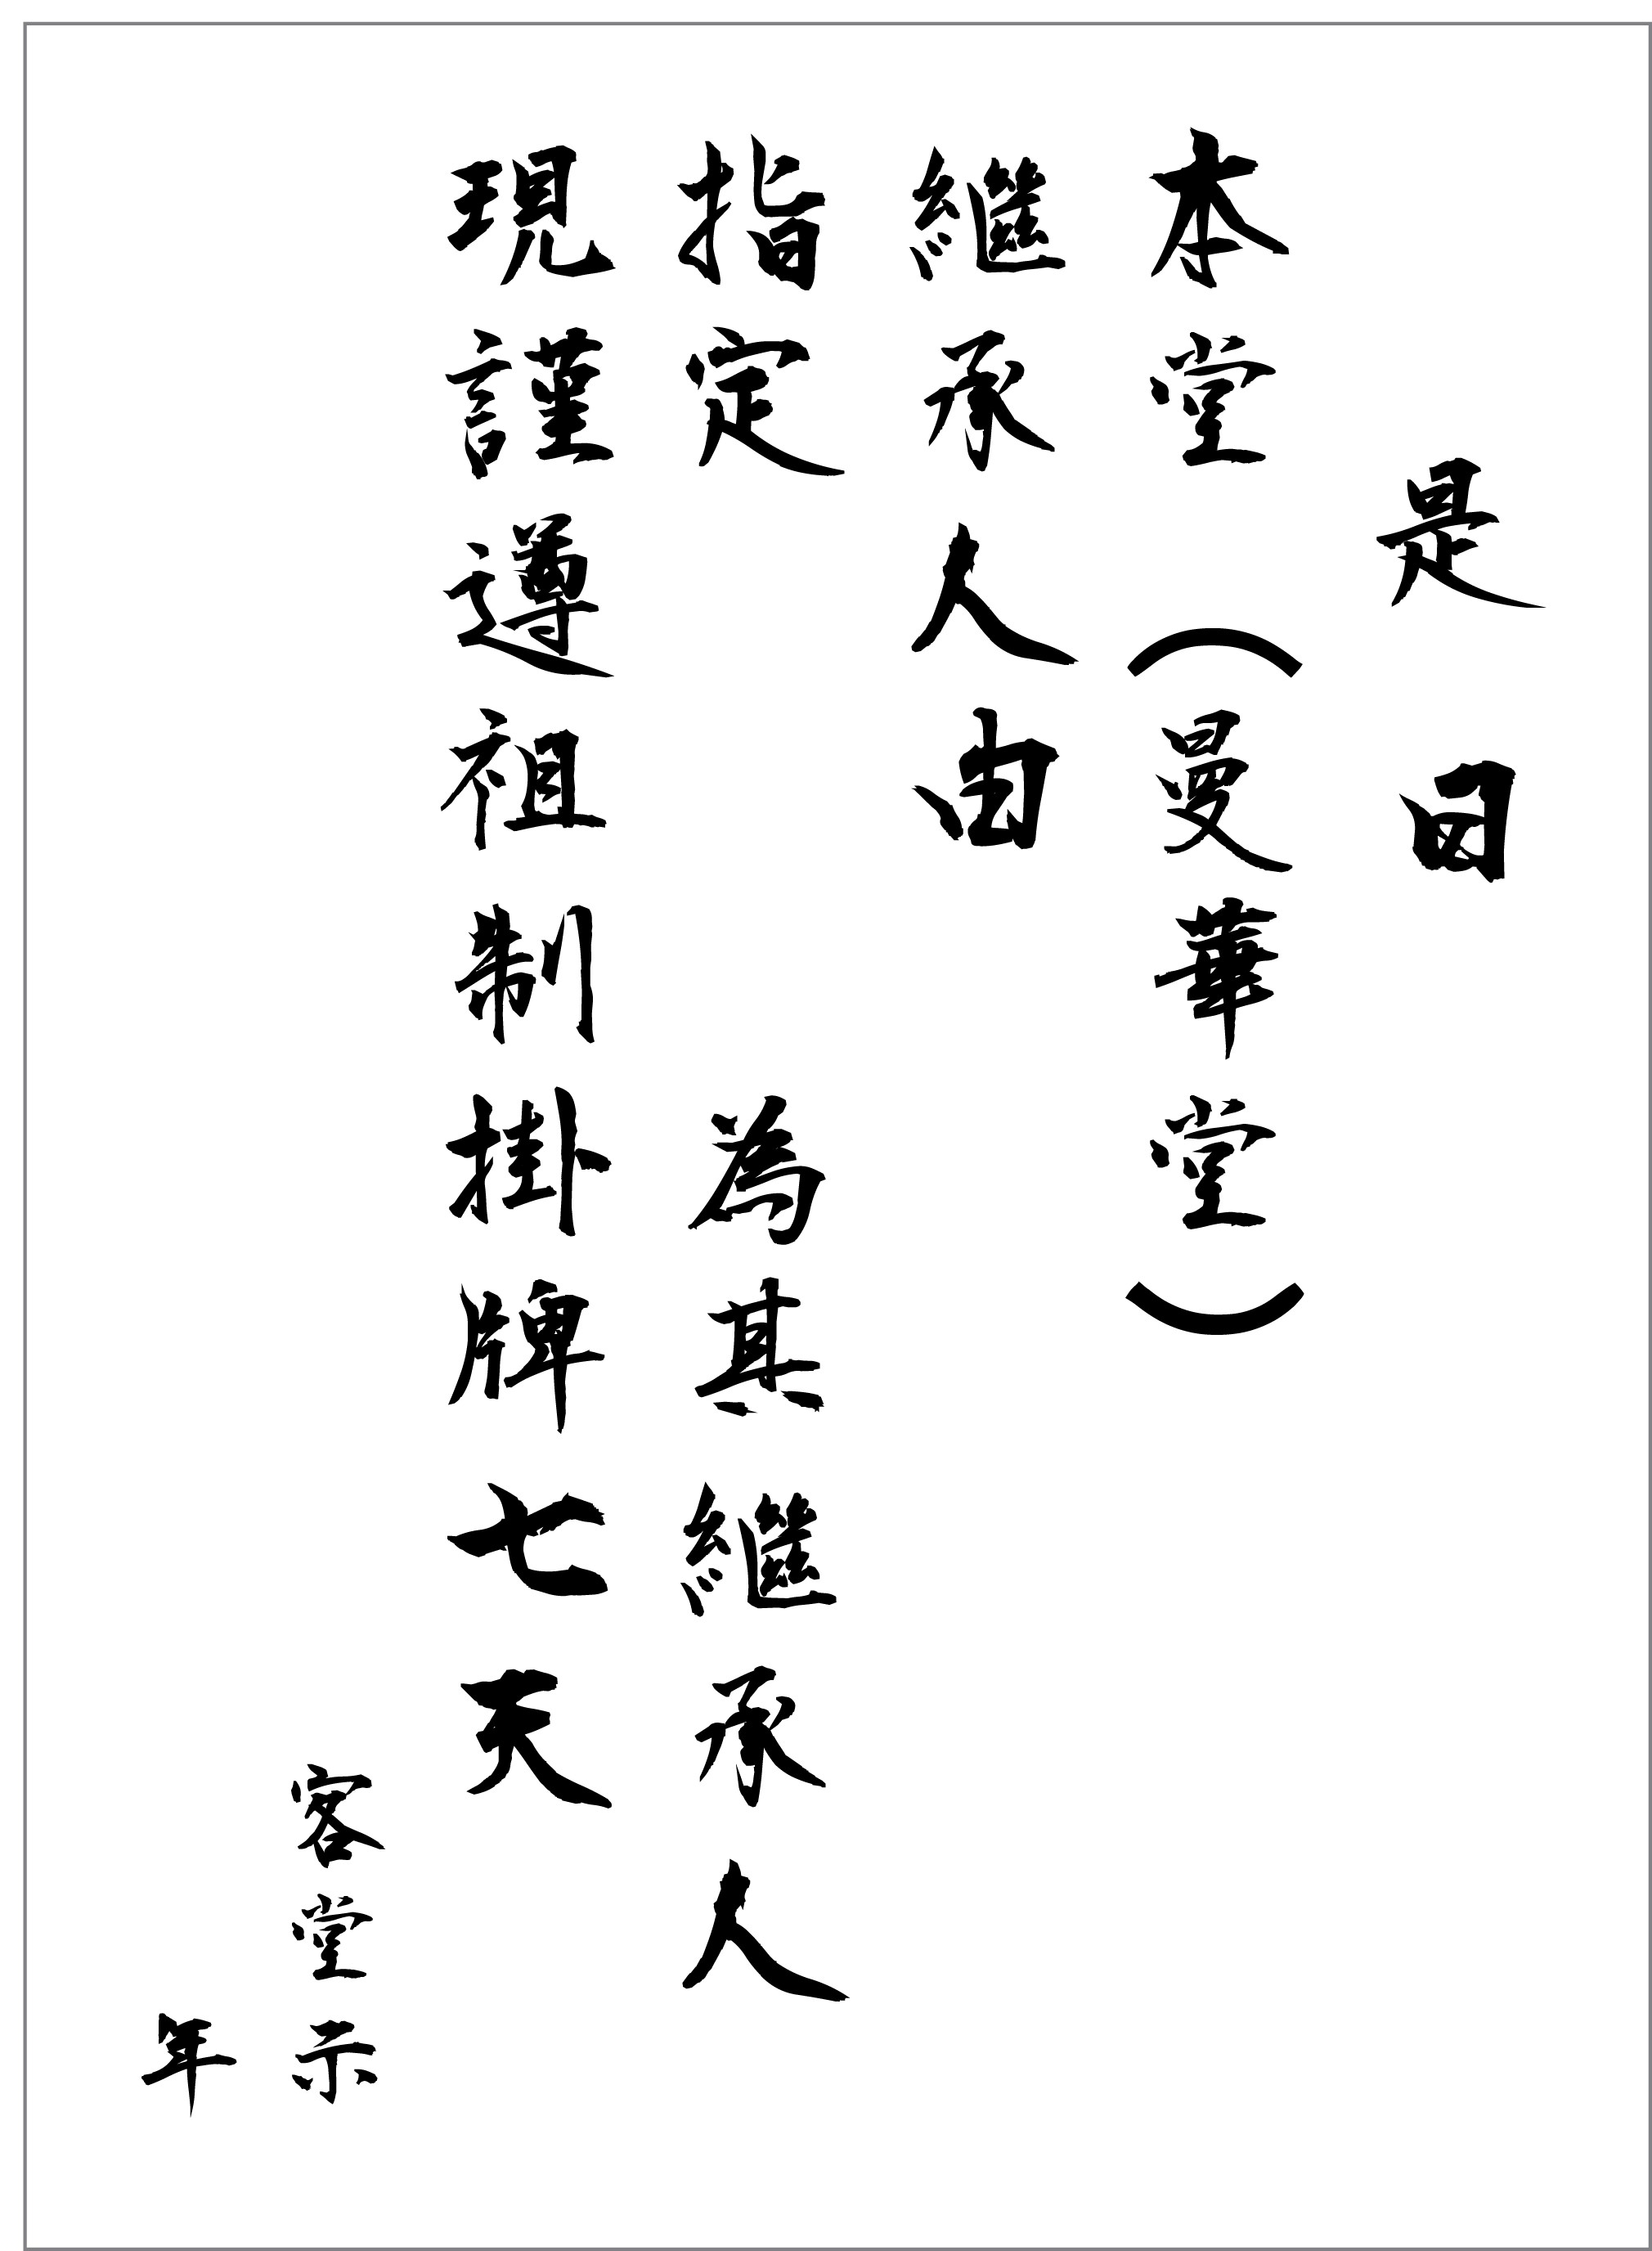 是日
本堂（曼華堂）
繼承人由
指定　為其繼承人
現謹遵祖制掛牌七天
客堂示
年